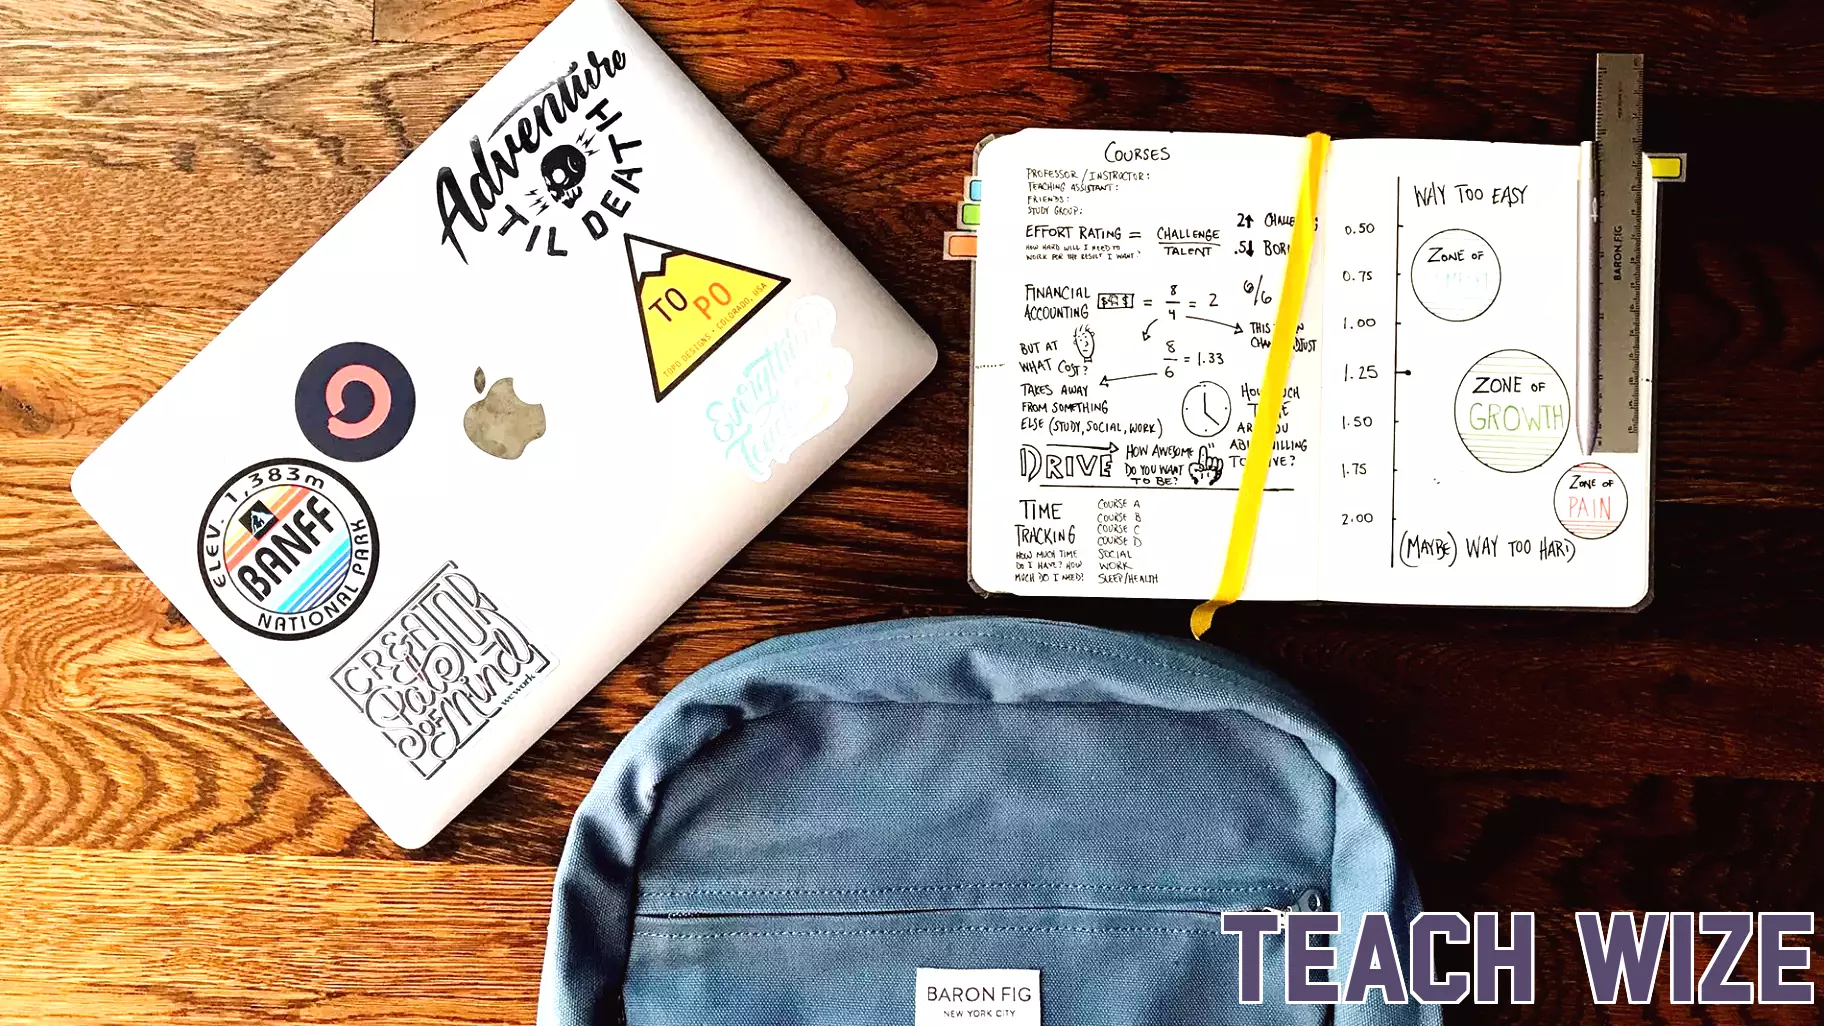 Adventure
'TIL DEATH
TO
PO
TOPO DESIGNS • COLORADO, USA
Everything
ELEV. 1,383m
BANFF
NATIONAL PARK
CREATOR
State
OF
Mind
wework
COURSES
PROFESSOR/INSTRUCTOR:
TEACHING ASSISTANT:
FRIENDS:
STUDY GROUP:
EFFORT RATING = CHALLENGE
TALENT
HOW HARD WILL I NEED TO
WORK FOR THE RESULT I WANT?
2↑
.5↓
FINANCIAL
ACCOUNTING
= 8/4 = 2
6/6
8/6 = 1.33
THIS
BUT AT
WHAT COST?
TAKES AWAY
FROM SOMETHING
ELSE (STUDY, SOCIAL, WORK)
DRIVE
HOW AWESOME
DO YOU WANT
TO BE?
TIME
TRACKING
HOW MUCH TIME
DO I HAVE? HOW
MUCH DO I NEED?
COURSE A
COURSE B
COURSE C
COURSE D
SOCIAL
WORK
SLEEP/HEALTH
WAY TOO EASY
0.50
0.75
1.00
1.25
1.50
1.75
2.00
ZONE OF
ZONE OF
GROWTH
ZONE OF
PAIN
(MAYBE) WAY TOO HARD
BARON FIG
BARON FIG
NEW YORK CITY
TEACH WIZE